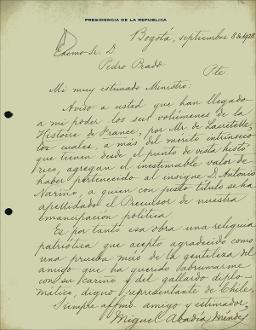 PRESIDENCIA DE LA REPUBLICA
Bogotá, septiembre 8 de 1928
Excmo Sr. D.
Pedro Prado
Pte.
Mi muy estimado Ministro:
Aviso a usted que han llegado
a mi poder los seis volúmenes de la
Historia de France, por Mr. de Lacretelle,
los cuales, a más del mérito intrínseco
que tienen desde el punto de vista histó
rico, agregan el inestimable valor de
haber pertenecido al insigne D. Antonio
Nariño, a quien con justo título se ha
apellidado el Precursor de nuestra
emancipación política.
Es por tanto esa obra una reliquia
patriótica que acepto agradecido como
una prueba más de la gentileza del
amigo que ha querido abrumarme
con su cariño y del gallardo diplo-
mático, digno representante de Chile.
Siempre afmo. amigo y estimador,
Miguel Abadía Méndez